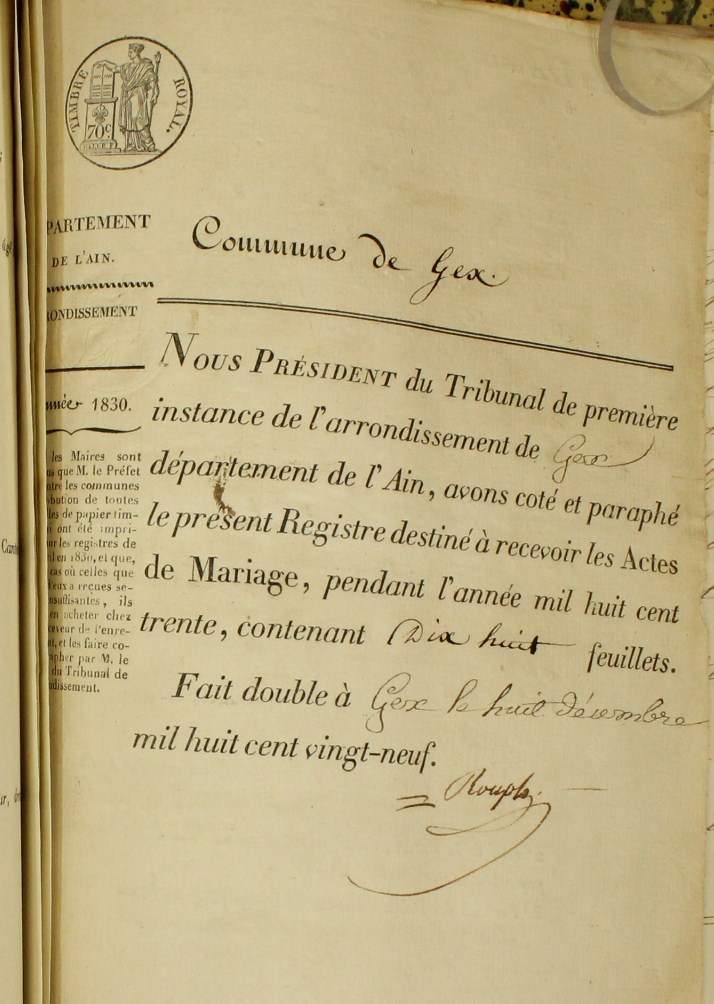 TIMBRE ROYAL.
70c.
PARTEMENT
DE L'AIN.
RONDISSEMENT
nnée 1830.
les Maires sont
que M. le Préfet
les communes
bution de toutes
les de papier tim-
ont été impri-
ur les registres de
en 1830, et que,
cas où celles que
eux a reçues se-
nsuffisantes, ils
en acheter chez
ceveur de l'enre-
, et les faire co-
apher par M. le
du Tribunal de
ndissement.
Commune de Gex.
NOUS PRÉSIDENT du Tribunal de première
instance de l'arrondissement de Gex
département de l'Ain, avons coté et paraphé
le présent Registre destiné à recevoir les Actes
de Mariage, pendant l'année mil huit cent
trente, contenant Dix huit feuillets.
Fait double à Gex le huit décembre
mil huit cent vingt-neuf.